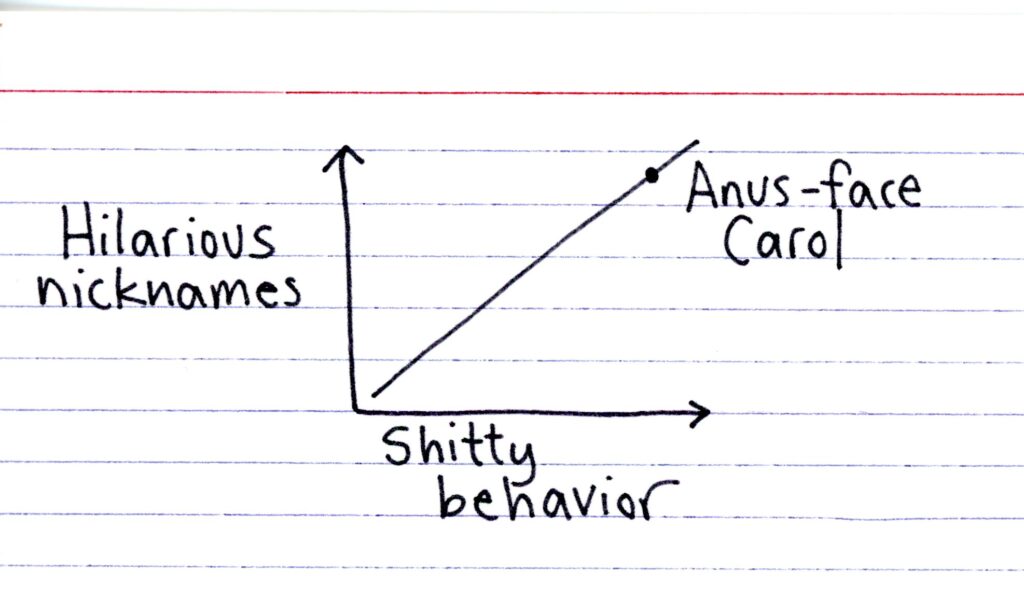 Hilarious
nicknames
Anus-face
Carol
Shitty
behavior